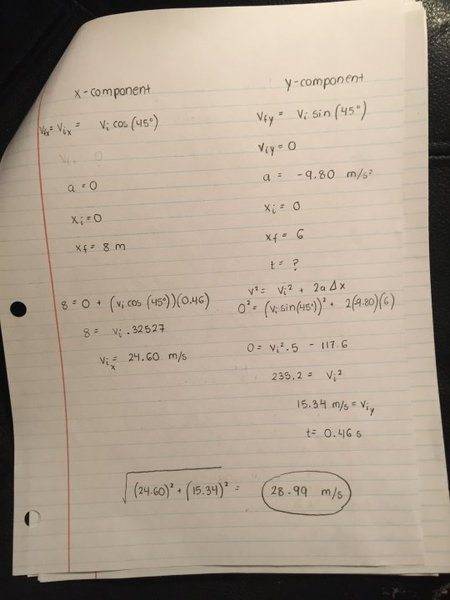 x-component
vfx = vix = vi cos (45°)
a = 0
xi = 0
xf = 8 m
8 = 0 + (vi cos (45°))(0.46)
8 = vi .32527
vix = 24.60 m/s
y-component
vfy = vi sin (45°)
viy = 0
a = -9.80 m/s²
xi = 0
xf = 6
t = ?
v² = vi² + 2a Δx
0² = (vi sin(45°))² + 2(-9.80)(6)
0 = vi² .5 - 117.6
235.2 = vi²
15.34 m/s = viy
t = 0.46 s
√(24.60)² + (15.34)² = 28.99 m/s